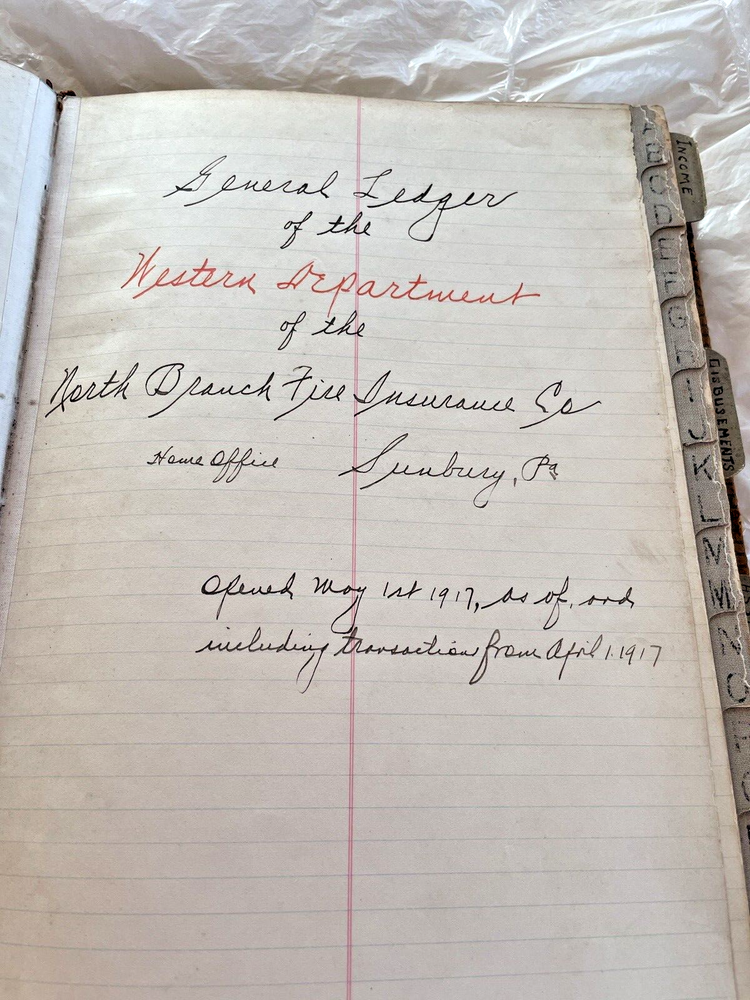 General Ledger
of the
Western Department
of the
North Branch Fire Insurance Co
Home Office Sunbury, Pa
Opened May 1st 1917, as of, and
including transaction from April 1. 1917
INCOME
DISBUSEMENTS
A
B
C
D
E
F
G
H
I
J
K
L
N
M
N
O